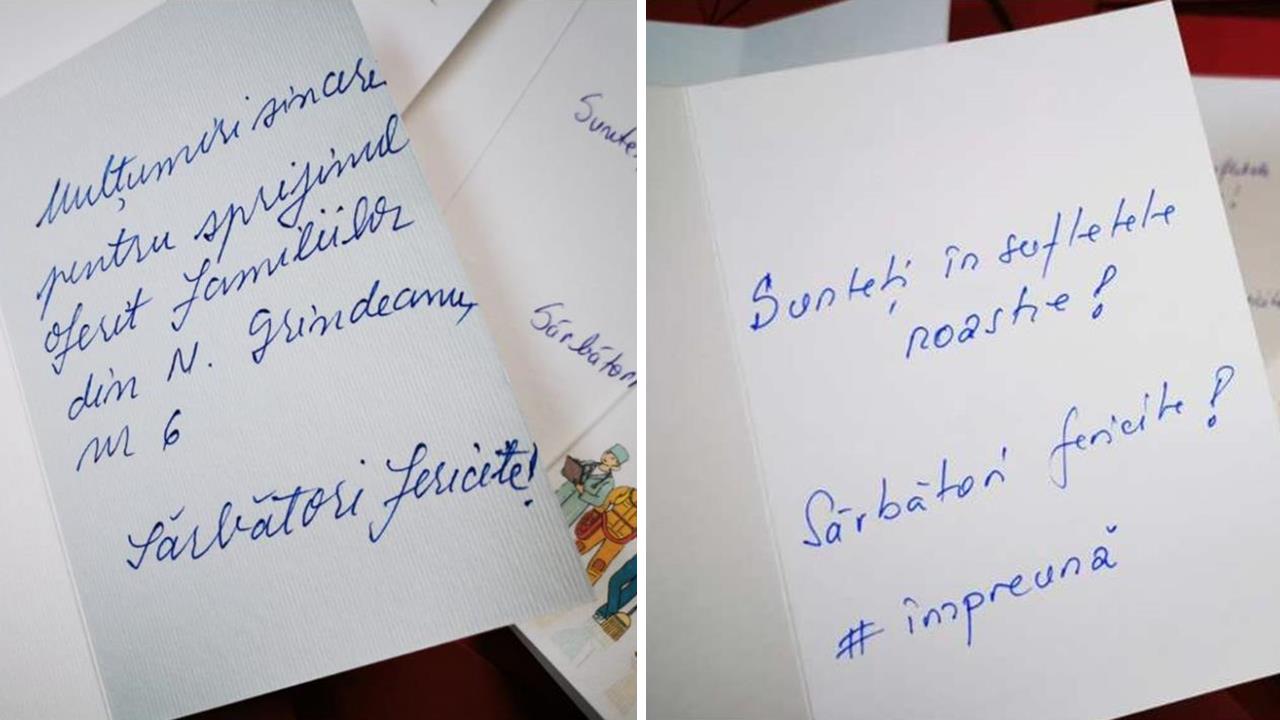 Mulțumiri sincere
pentru sprijinul
oferit familiilor
din N. Grindeanu,
nr 6
Sărbători fericite!
Sunte
Sărbători
Sunteți în sufletele
noastre!
Sărbători fericite!
# împreună